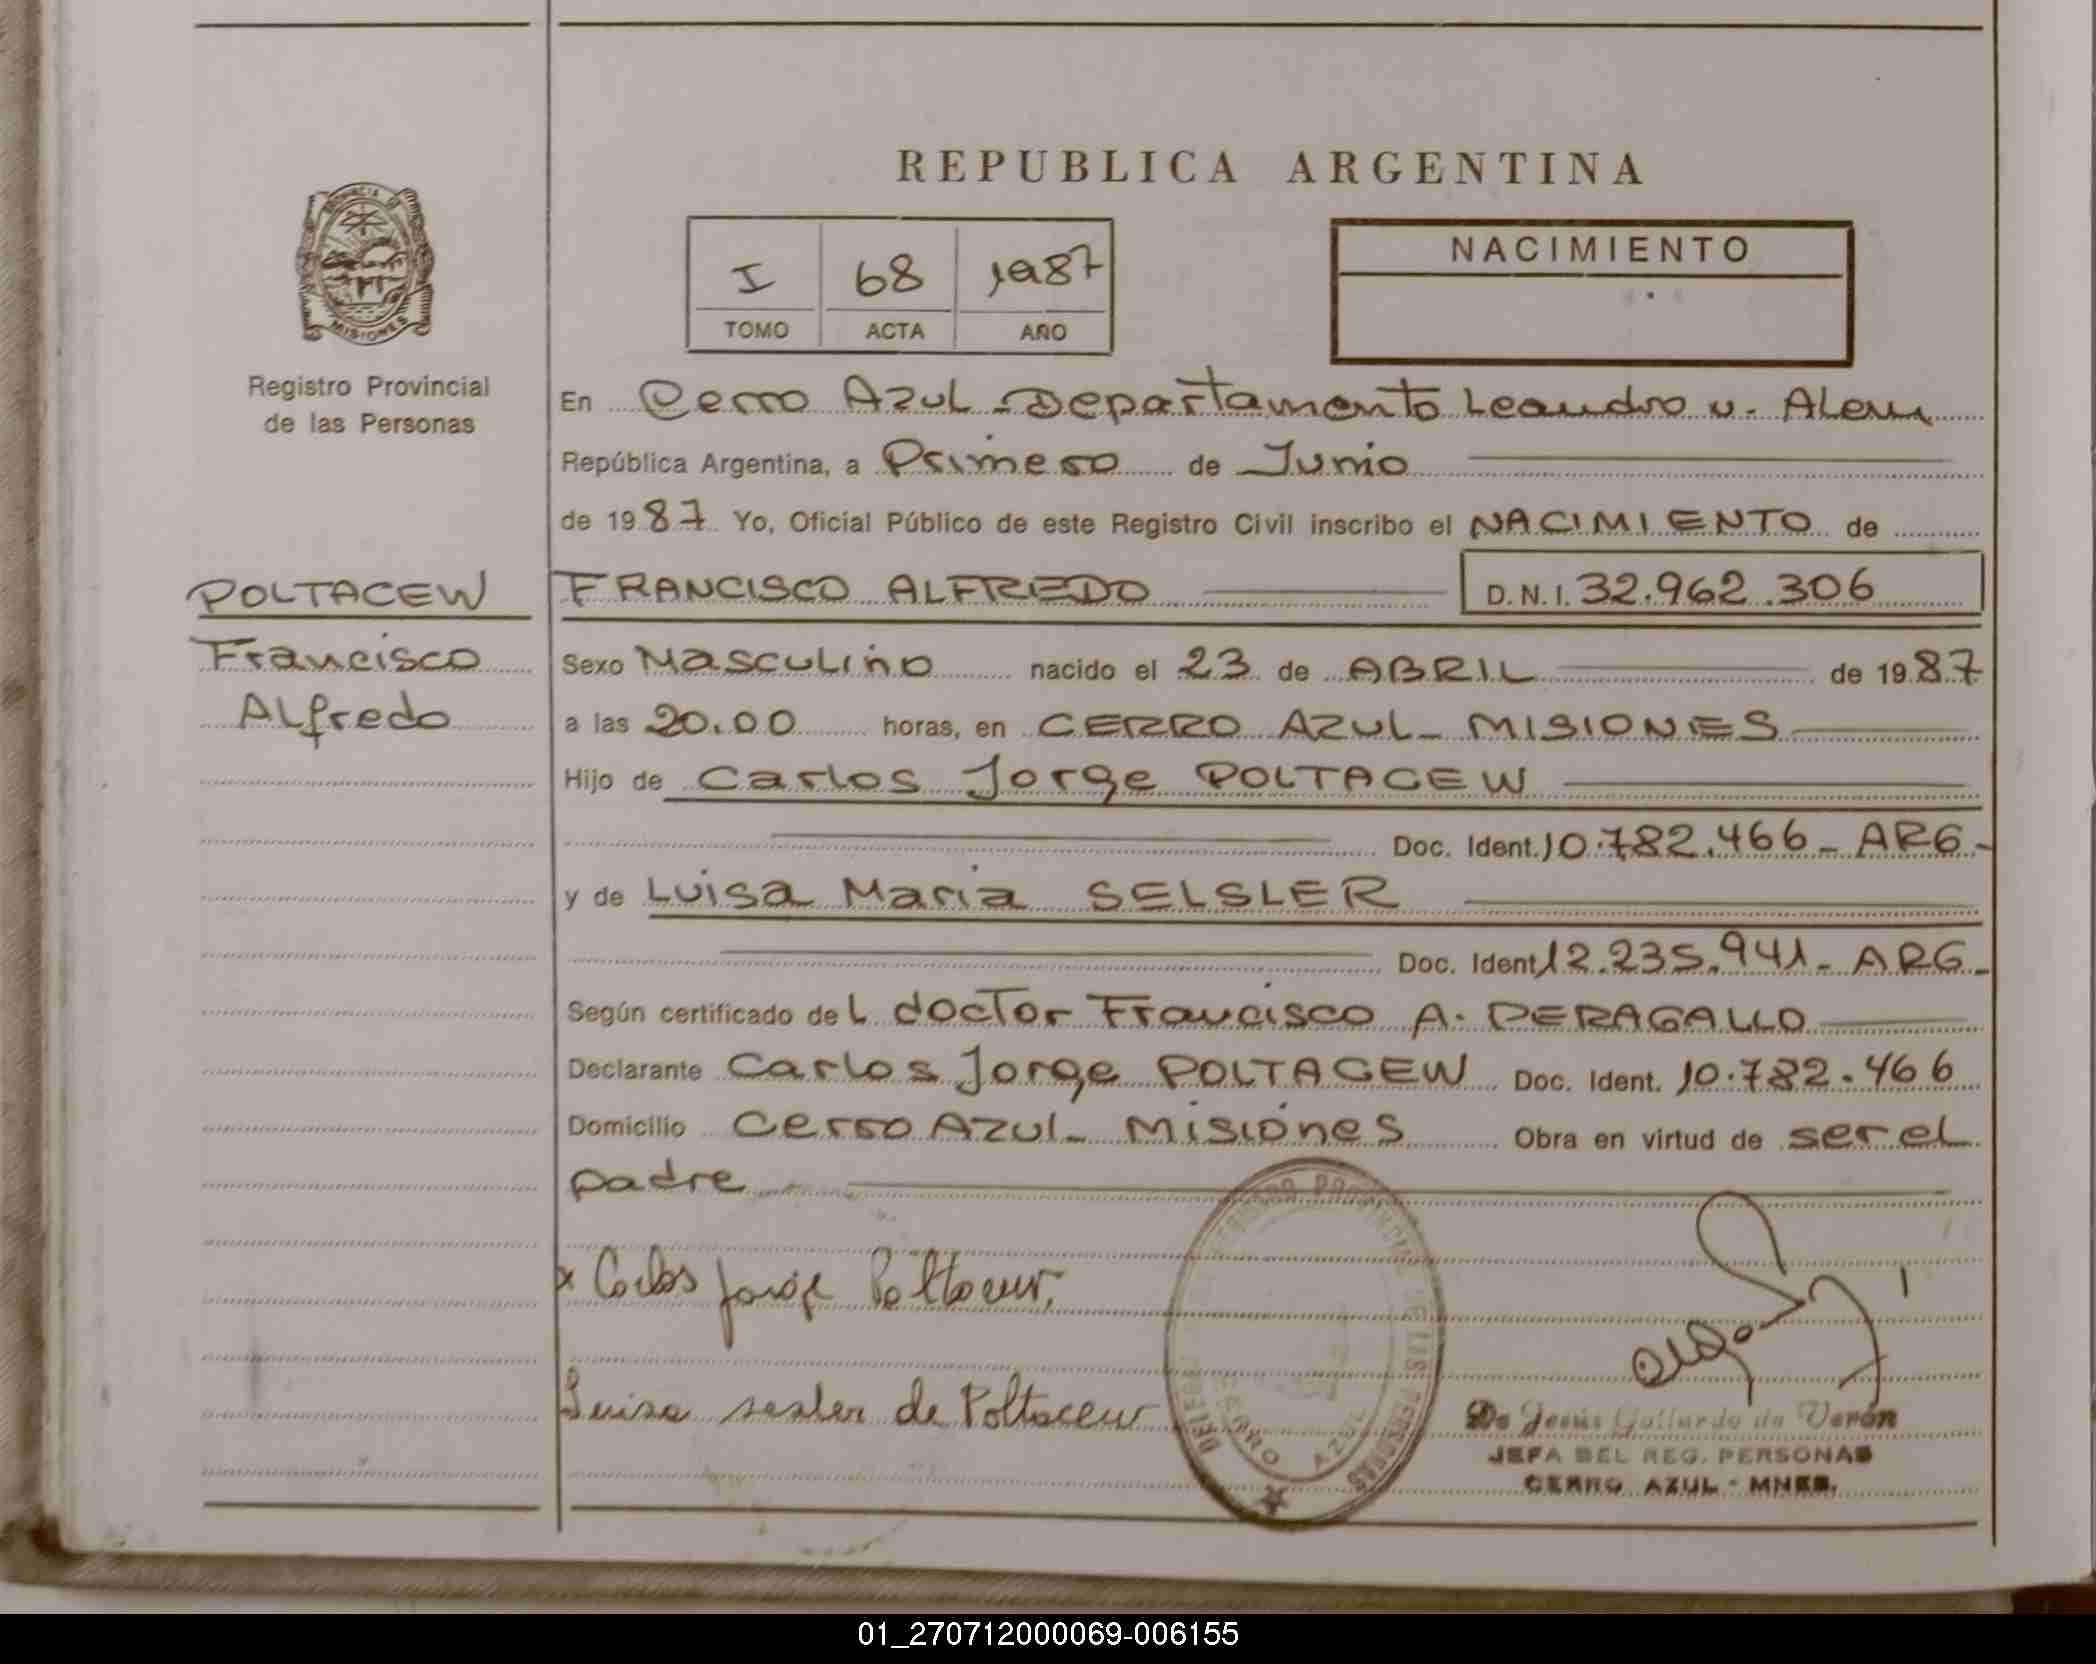 REPUBLICA ARGENTINA
PROVINCIA DE
MISIONES
Registro Provincial
de las Personas
I 68 1987
TOMO ACTA AÑO
NACIMIENTO
En Cerro Azul - Departamento Leandro N. Alem
República Argentina, a Primero de Junio
de 1987 Yo, Oficial Público de este Registro Civil inscribo el NACIMIENTO de
POLTACEW
Francisco
Alfredo
FRANCISCO ALFREDO D.N.I. 32.962.306
Sexo Masculino nacido el 23 de ABRIL de 1987
a las 20.00 horas, en CERRO AZUL - MISIONES
Hijo de Carlos Jorge POLTACEW
Doc. Ident. 10.782.466 - ARG -
y de Luisa Maria SELSLER
Doc. Ident. 12.235.941 - ARG -
Según certificado del doctor Francisco A. PERAGALLO
Declarante Carlos Jorge POLTACEW Doc. Ident. 10.782.466
Domicilio Cerro Azul - Misiones Obra en virtud de ser el
padre
x Carlos Jorge Poltacew
Luisa sesler de Poltacew
REGISTRO PROVINCIAL DE LAS PERSONAS
CERRO AZUL
De Jesús Gallardo de Verón
JEFA DEL REG. PERSONAS
CERRO AZUL - MNES.
01_270712000069-006155